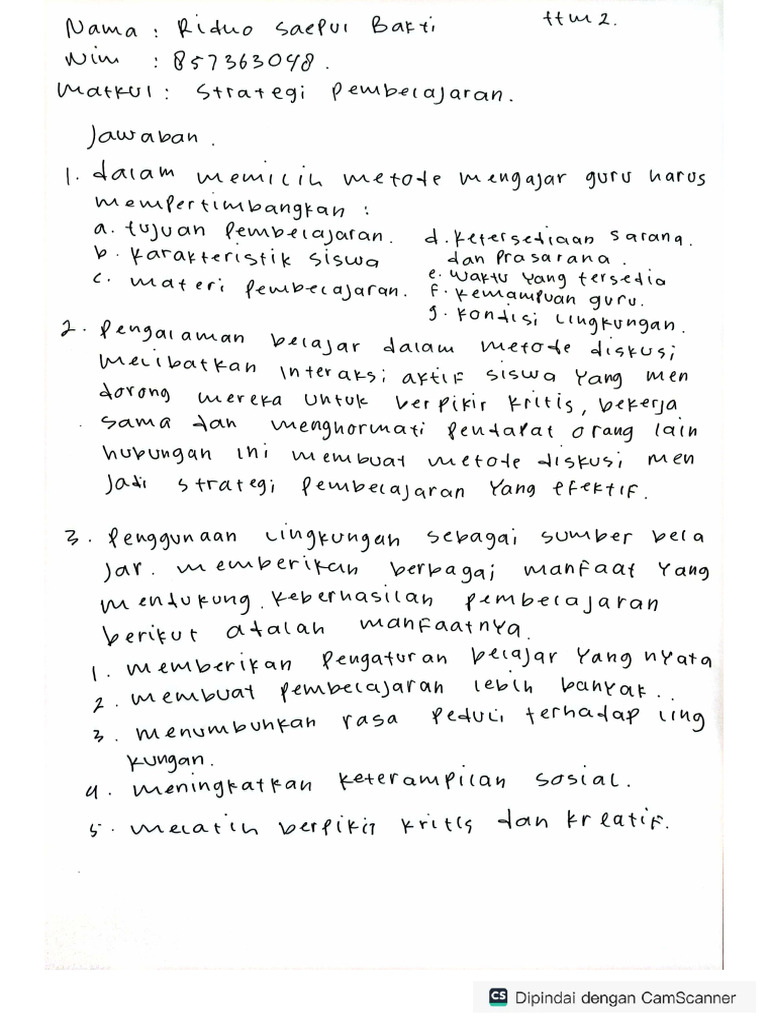 Nama : Ridwo Saepul Bakti ttm 2.
Nim : 857363048.
Matkul : Strategi Pembelajaran.
Jawaban.
1. dalam memilih metode mengajar guru harus
mempertimbangkan :
a. tujuan Pembelajaran.
b. Karakteristik siswa
c. materi Pembelajaran.
d. Ketersediaan sarana.
dan Prasarana.
e. Waktu Yang tersedia
f. Kemampuan guru.
g. Kondisi lingkungan.
2. Pengalaman belajar dalam metode diskusi
melibatkan interaksi aktif siswa Yang men
dorong mereka untuk berpikir kritis, bekerja
sama dan menghormati Pendapat orang lain
hubungan ini membuat metode diskusi men
Jadi strategi Pembelajaran Yang efektif.
3. Penggunaan lingkungan sebagai sumber bela
jar. memberikan berbagai manfaat Yang
mendukung keberhasilan Pembelajaran
berikut adalah manfaatnya.
1. memberikan Pengaturan belajar Yang nyata
2. membuat Pembelajaran lebih banyak..
3. menumbuhkan rasa Peduli terhadap ling
kungan.
4. meningkatkan keterampilan sosial.
5. melatih berpikir kritis dan kreatif.
CS Dipindai dengan CamScanner